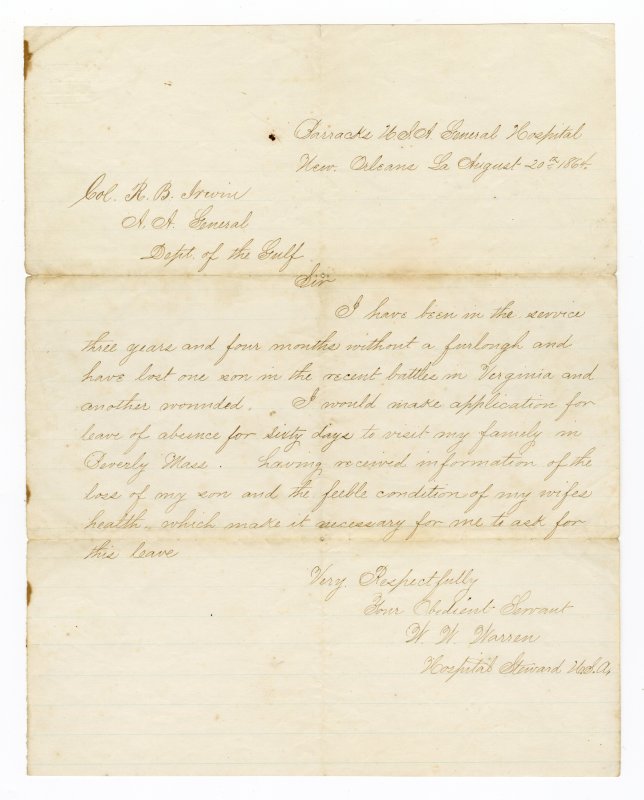 Barracks U.S.A. General Hospital
New. Orleans La August 20th 1864.
Col. R. B. Irwin
A. A. General
Dept. of the Gulf
Sir
I have been in the service
three years and four months without a furlough and
have lost one son in the recent battles in Verginia and
another wounded. I would make application for
leave of absence for sixty days to visit my family in
Beverly Mass. having received information of the
loss of my son and the feeble condition of my wifes
health. which make it necessary for me to ask for
this leave
Very. Respectfully
Your Obedient Servant
W. W. Warren
Hospital Steward U.S.A.